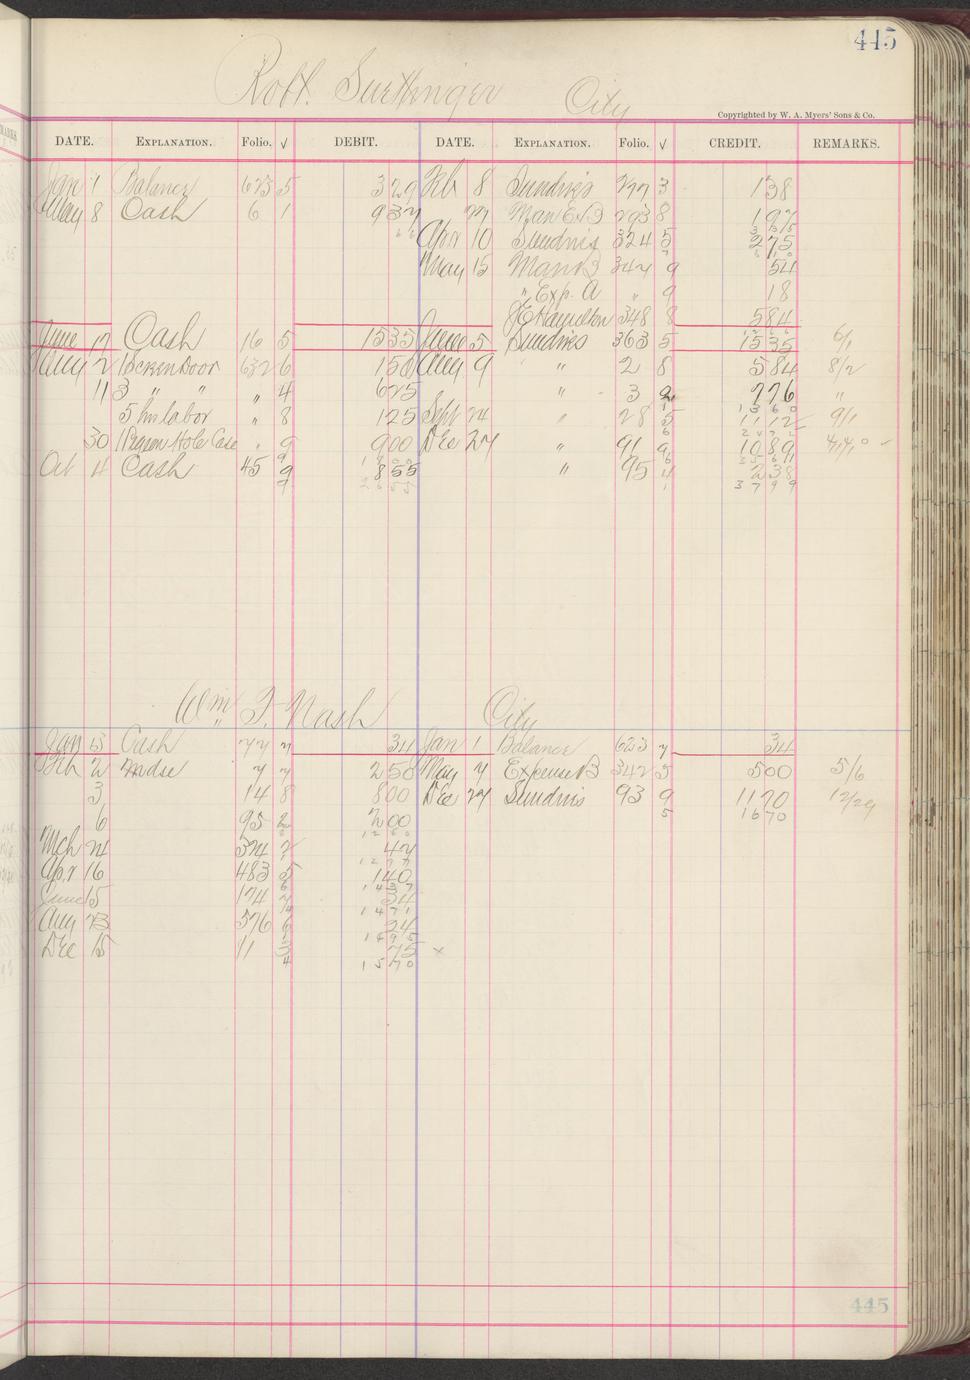 445
Robt. City
Copyrighted by W. A. Myers' Sons & Co.
DATE. EXPLANATION. Folio. √ DEBIT. DATE. EXPLANATION. Folio. √ CREDIT. REMARKS.
Jan 1 Balance 623 5 329 Feb 8 Sundries 3 138
May 8 Cash 6 1 937 27 Man Ex B 293 8 197
Apr 10 Sundries 324 5 275
May 15 Man B 347 9 54
" Exp. A " 9 18
Hamilton 348 8 584
June 17 Cash 16 5 1535 June 5 Sundries 363 5 1535 6/1
Aug 2 1 Screen Door 632 6 150 Aug 9 " 2 8 584 8/2
11 3 " " " 4 625 " 3 2 776 "
5 hrs labor " 8 125 Sept 24 " 28 5 1112 9/1
30 1 Hole Case " 9 900 Dec 27 " 91 9 1089
Oct 4 Cash 45 9 855 " 95 4 238
2655 3799
Wm F. Nash City
Jan 3 Cash 77 7 34 Jan 1 Balance 623 7 34
Feb 2 Mdse 7 7 250 May 7 Expense B 342 5 500 5/6
3 14 8 800 Dec 27 Sundries 93 9 1170 12/29
6 95 2 200 5 1670
1250
Mch 24 374 7 47
1297
Apr 16 483 5 140
1437
June 5 174 7 34
1471
Aug 23 576 6 24
1495
Dec 15 11 3 75 x
4 1570
445